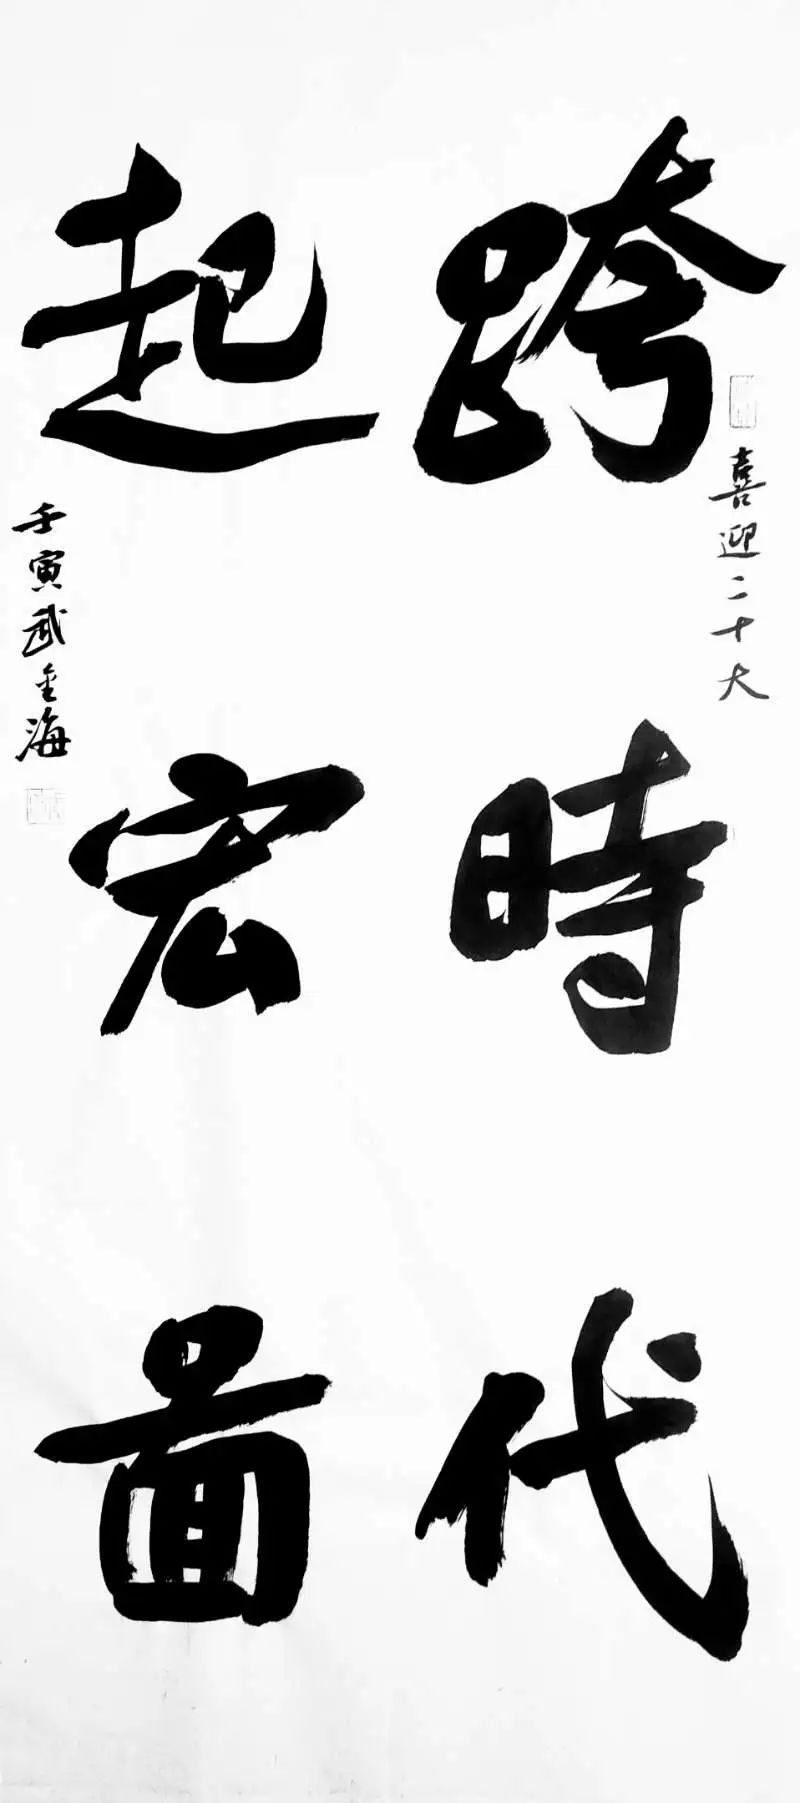 喜迎二十大
跨時代
起宏圖
壬寅武金海